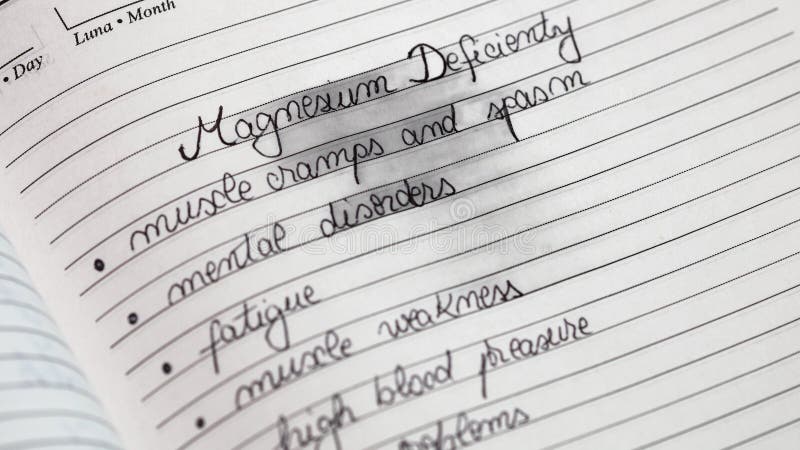 Luna • Month
• Day
Magnesium Deficienty
• muscle cramps and spasm
• mental disorders
• fatigue
• muscle weakness
high blood preasure
oblems
dreamstime